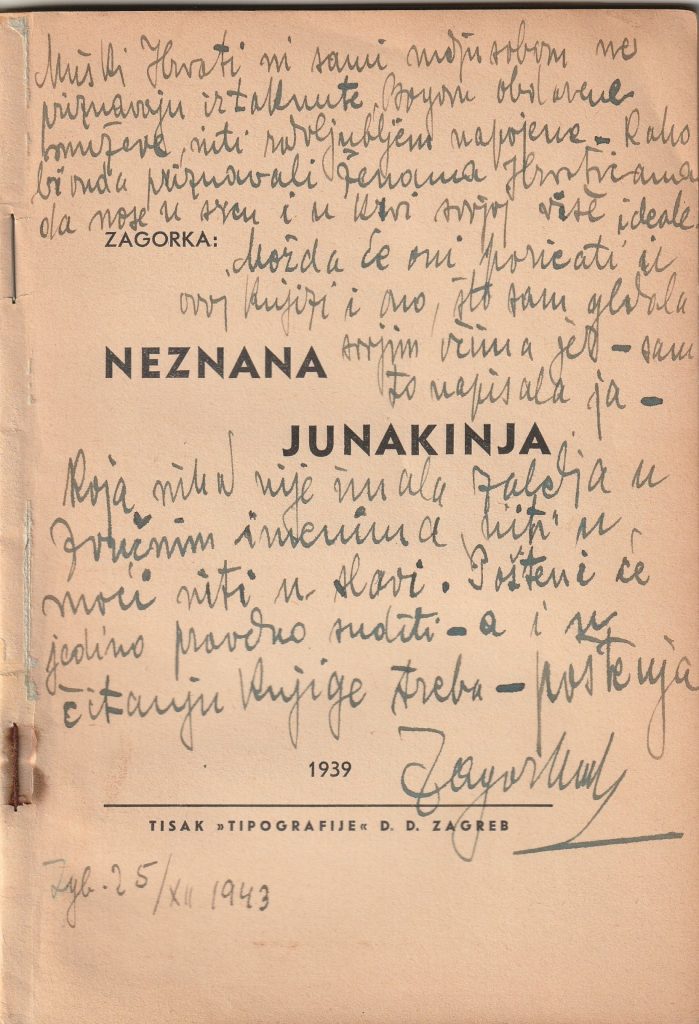 Muški Hrvati ni sami medjusobom ne
priznavaju iztaknute, Bogom obdarene
muževe, niti rodoljubljem napojene – Kako
bi onda priznavali ženama Hrvaticama
da nose u srcu i u krvi svojoj više ideale.
ZAGORKA:
Možda će oni poricati i u
ovoj knjizi i ono, što sam gledala
svojim očima jer – sam
to napisala ja –
NEZNANA
JUNAKINJA
Koja nikad nije imala zaledja u
zvučnim imenima, niti u
moći niti u slavi. Pošteni će
jedino pravedno suditi – a i u
čitanju knjige treba – poštenja
Zagorka
1939
TISAK »TIPOGRAFIJE« D. D. ZAGREB
Zgb. 25/XII 1943